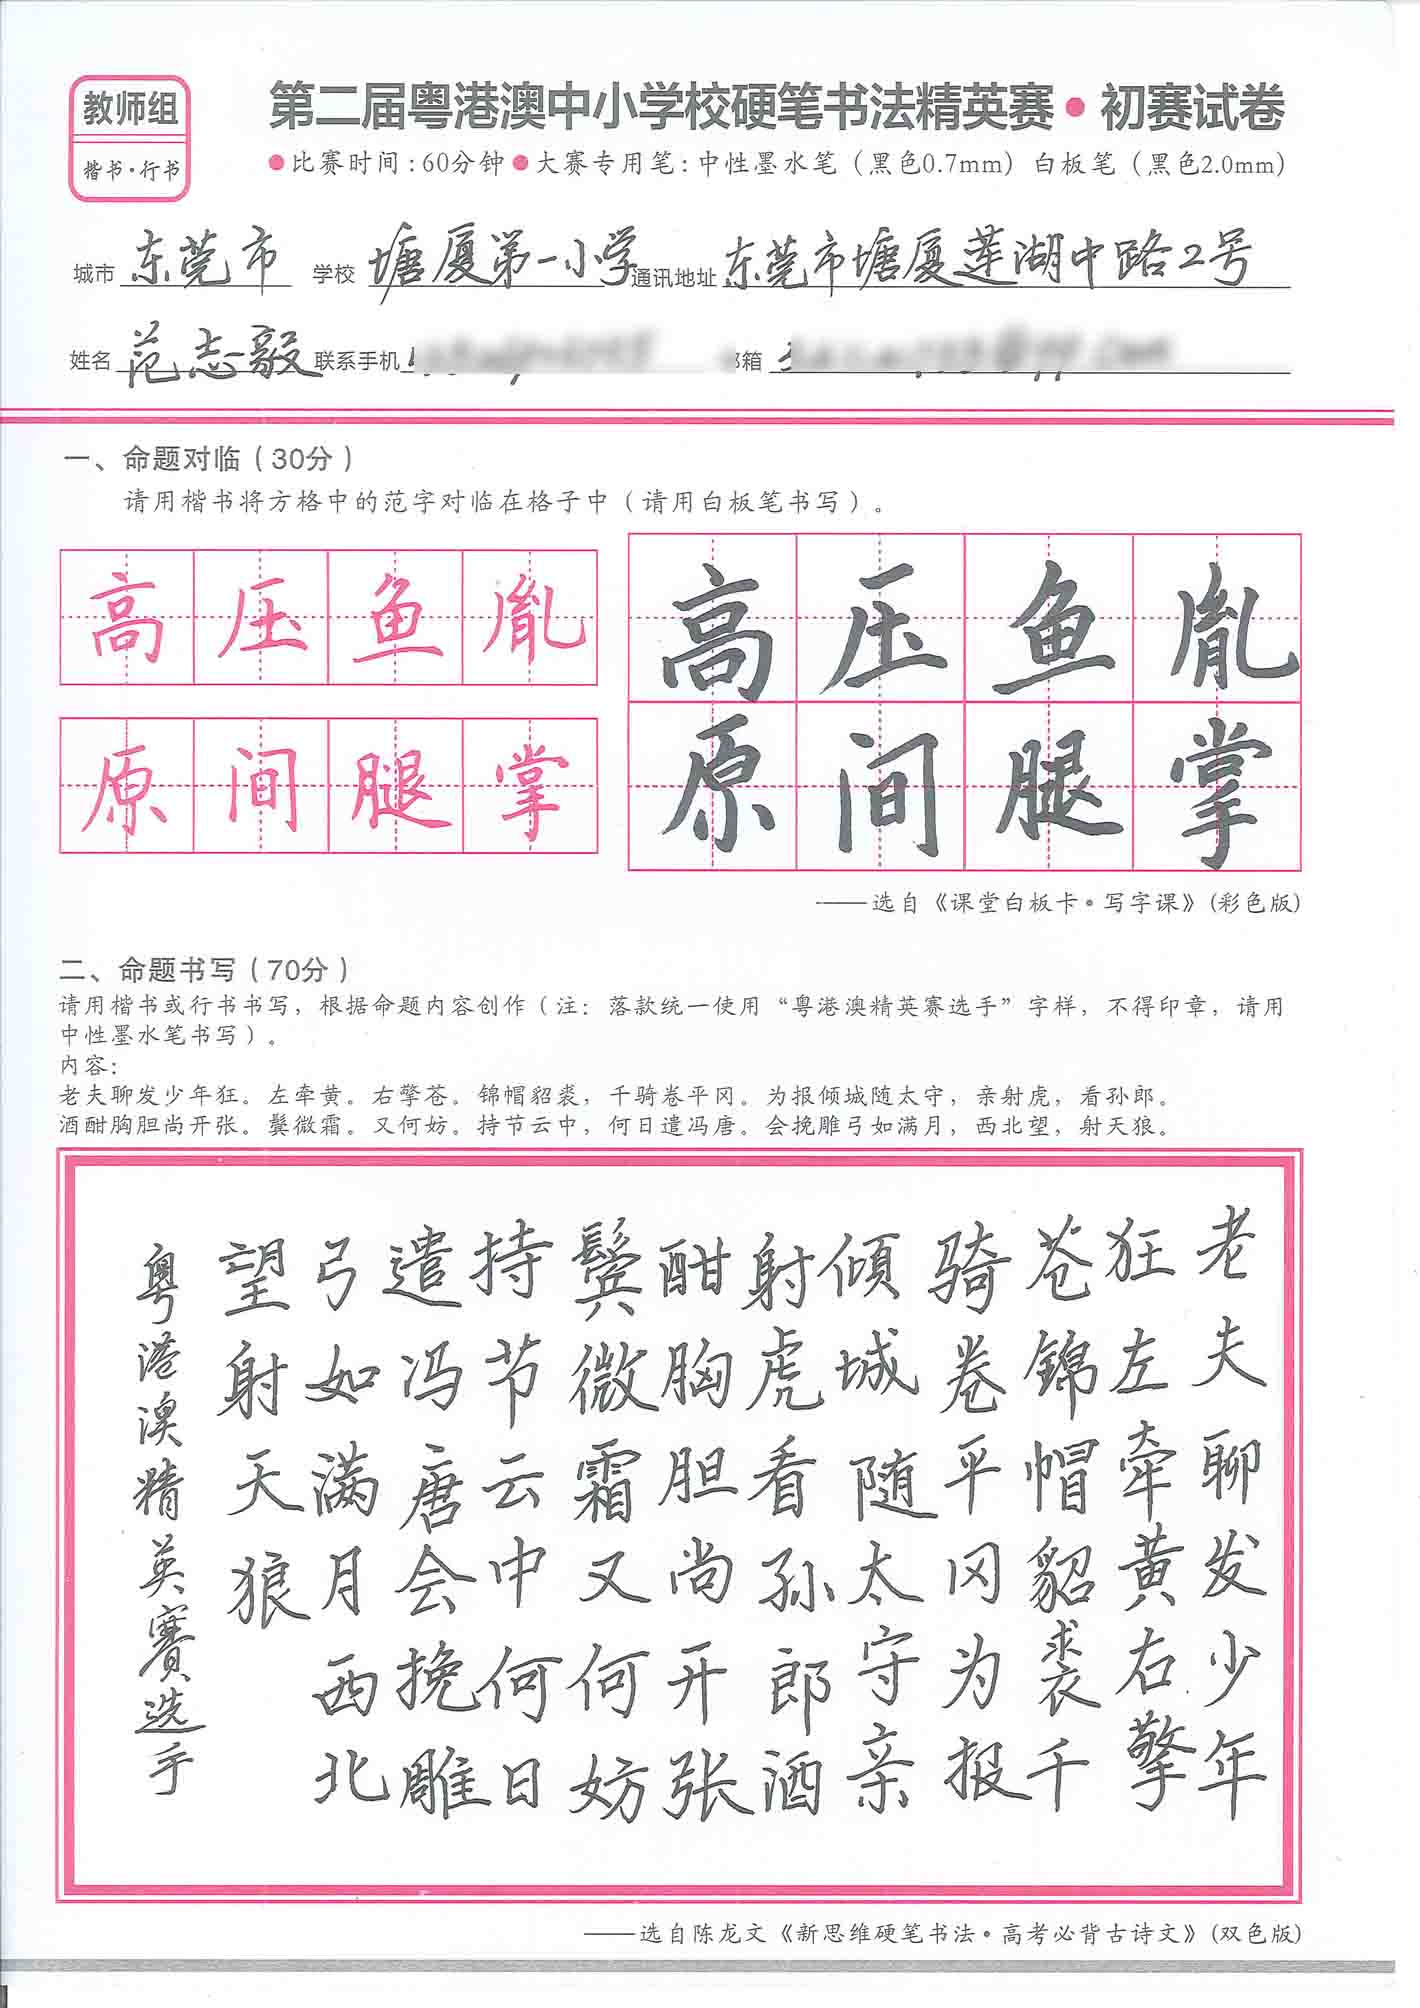 教师组
楷书·行书
第二届粤港澳中小学校硬笔书法精英赛·初赛试卷
●比赛时间:60分钟●大赛专用笔:中性墨水笔（黑色0.7mm）白板笔（黑色2.0mm）
城市 东莞市 学校 塘厦第一小学 通讯地址 东莞市塘厦莲湖中路2号
姓名 范志毅 联系手机 邮箱
一、命题对临（30分）
请用楷书将方格中的范字对临在格子中（请用白板笔书写）。
高压鱼胤
原间腿掌
高压鱼胤
原间腿掌
——选自《课堂白板卡·写字课》(彩色版)
二、命题书写（70分）
请用楷书或行书书写，根据命题内容创作（注：落款统一使用“粤港澳精英赛选手”字样，不得印章，请用
中性墨水笔书写）。
内容：
老夫聊发少年狂。左牵黄。右擎苍。锦帽貂裘，千骑卷平冈。为报倾城随太守，亲射虎，看孙郎。
酒酣胸胆尚开张。鬓微霜。又何妨。持节云中，何日遣冯唐。会挽雕弓如满月，西北望，射天狼。
老夫聊发少年
狂左牵黄右擎
苍锦帽貂裘千
骑卷平冈为报
倾城随太守亲
射虎看孙郎酒
酣胸胆尚开张
鬓微霜又何妨
持节云中何日
遣冯唐会挽雕
弓如满月西北
望射天狼
粤港澳精英賽选手
——选自陈龙文《新思维硬笔书法·高考必背古诗文》(双色版)